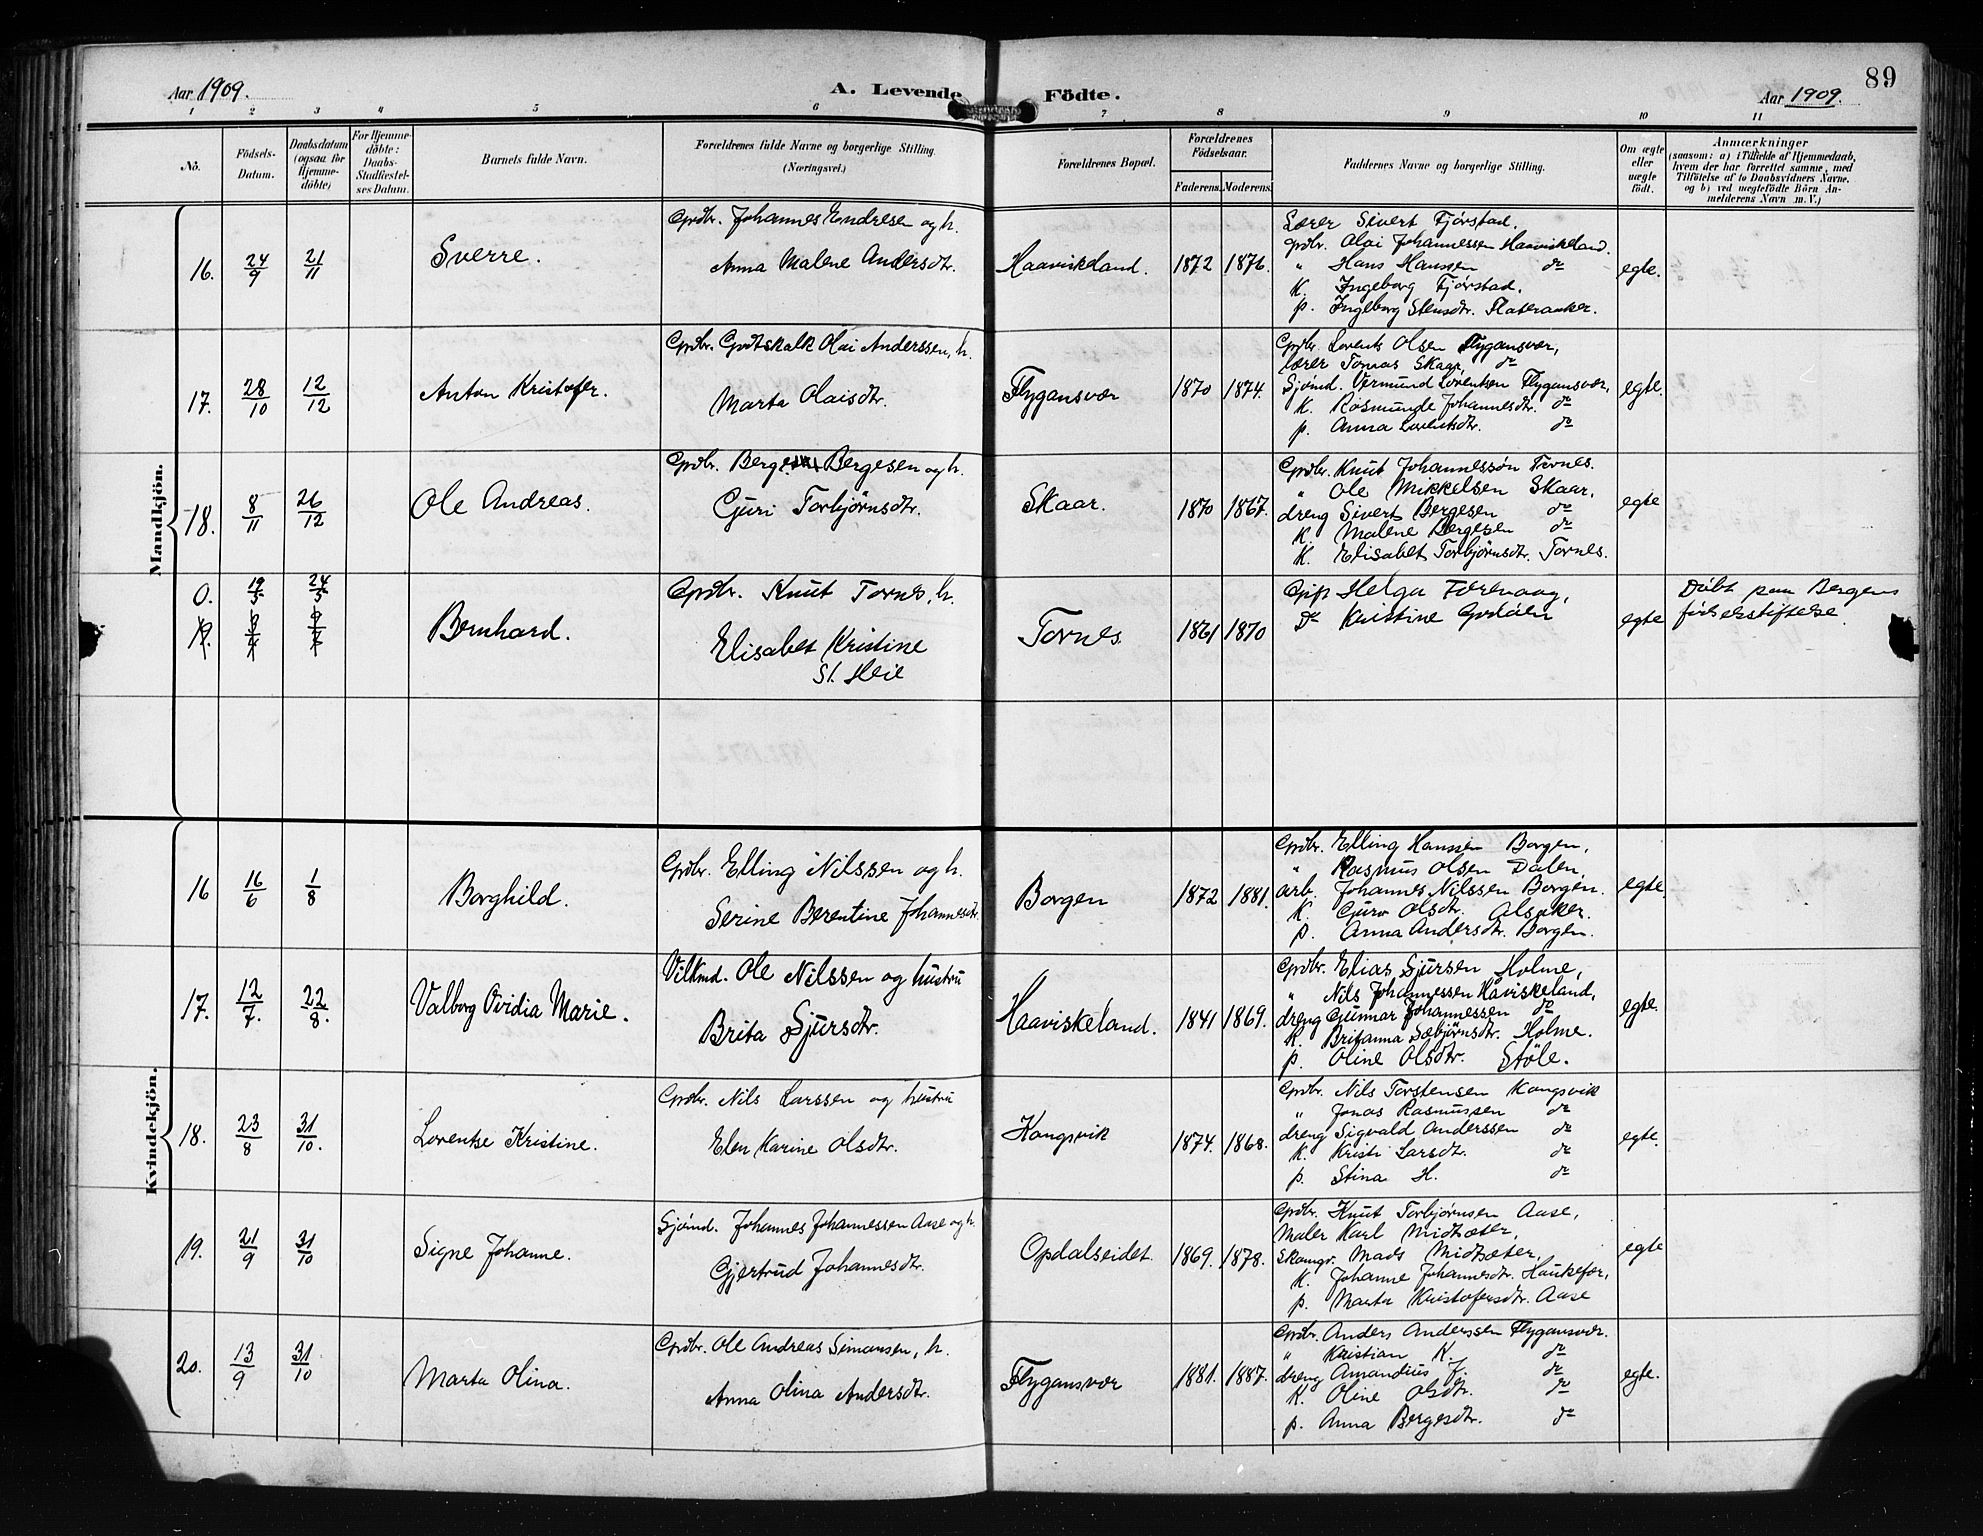 Aar 1909.
A. Levende Födte.
Aar 1909.
89
1 2 3 4 5 6 7 8 9 10 11
No.
Födsels-Datum.
Daabsdatum (ogsaa for Hjemme-döbte)
For Hjemme-döbte: Daabs-Stadfæstel-ses Datum.
Barnets fulde Navn.
Forældrenes fulde Navne og borgerlige Stilling. (Næringsvei.)
Forældrenes Bopæl.
Forældrenes Födselsaar.
Faderens. Moderens.
Faddernes Navne og borgerlige Stilling.
Om ægte eller uægte födt.
Anmærkninger
(saasom: a) i Tilfælde af Hjemmedaab, hvem der har forrettet samme, med Tilföielse af to Daabsvidners Navne. og b) ved uægtefödte Börn An-melderens Navn m. V.)
Mandkjön.
16. 24/9 21/11 Sverre.
Grdbr. Johannes Endresen og h.
Anna Malene Andersdtr.
Haaviskeland. 1872 1876.
Lærer Sivert Fjørstad.
Grdbr. Olai Johannessen Haaviskeland.
" Hans Hanssen do
K. Ingeborg Fjørstad.
p. Ingeborg Stensdtr.
egte.
17. 28/10 12/12 Anton Kristofer.
Grdbr. Gotskalk Olai Anderssen, h.
Marta Olaisdtr.
Flygansvær 1870 1874.
Grdbr. Lorents Olsen Flygansvær,
lærer Tomas Skaar, do
Sjømd. Vermund Lorentsen Flygansvær,
K. Rasmunde Johannesdtr. do
p. Anna Lorentsdtr. do
egte.
18. 8/11 26/12 Ole Andreas.
Grdbr. Berge Bergesen og h.
Guri Torbjørnsdtr.
Skaar. 1870 1867.
Grdbr. Knut Johannessøn Tornes.
" Ole Mikkelsen Skaar,
dreng Sivert Bergesen do
K. Malene Bergesen do
K. Elisabet Torbjørnsdtr. Tornes.
egte
0. 19/3 24/3 Bernhard.
Grdbr. Knut Tornes, h.
Elisabet Kristine
St. Heie
Tornes 1861 1870
Gift Helga Førenaag,
Do Kristine Godøen
egte
Døbt paa Bergens
fødselsstiftelse.
Kvindekjön.
16 16/6 1/8 Borghild.
Grdbr. Elling Nilssen og h.
Serine Berentine Johannesdtr.
Borgen 1872 1881.
Grdbr. Elling Hanssen Borgen,
" Rasmus Olsen Dalen,
arb. Johannes Nilssen Borgen.
K. Guro Olsdtr. Alsaker.
p. Anna Andersdtr. Borgen.
egte
17. 12/7. 22/8. Valborg Ovidia Marie.
Vilkmd. Ole Nilssen og hustru
Brita Sjursdtr.
Haaviskeland. 1841 1869.
Grdbr. Elias Sjursen Holme,
" Nils Johannessen Håviskeland,
dreng Gunnar Johannessen do
K. Britanna Sæbjørnsdtr. Holme.
p. Oline Olsdtr. Støle.
egte.
18. 23/8 31/10. Lorentse Kristine.
Grdbr. Nils Larssen og hustru
Elen Karine Olsdtr.
Kongsvik 1874. 1868.
Grdbr. Nils Torstensen Kongsvik
" Jonas Rasmussen do
dreng Sigvald Anderssen do
K. Kristi Larsdtr. do
p. Stina H. do
egte.
19. 21/9 31/10 Signe Johanne.
Sjømd. Johannes Johannessen Aase og h.
Gjertrud Johannesdtr.
Opdalseidet. 1869. 1878.
Grdbr. Knut Torbjørnsen Aase,
Maler Karl Midtsæter,
Skomgr. Mads Midtsæter,
K. Johanne Johannesdtr. Haukefær,
p. Marta Kristofersdtr. Aase
egte
20. 13/9 31/10 Marta Olina.
Grdbr. Ole Andreas Simonsen, h.
Anna Olina Andersdtr.
Flygansvær 1881. 1887.
Grdbr. Anders Anderssen Flygansvær.
" Kristian K. do
dreng Amandius J. do
K. Oline Olsdtr. do
p. Anna Bergesdtr. do
egte.